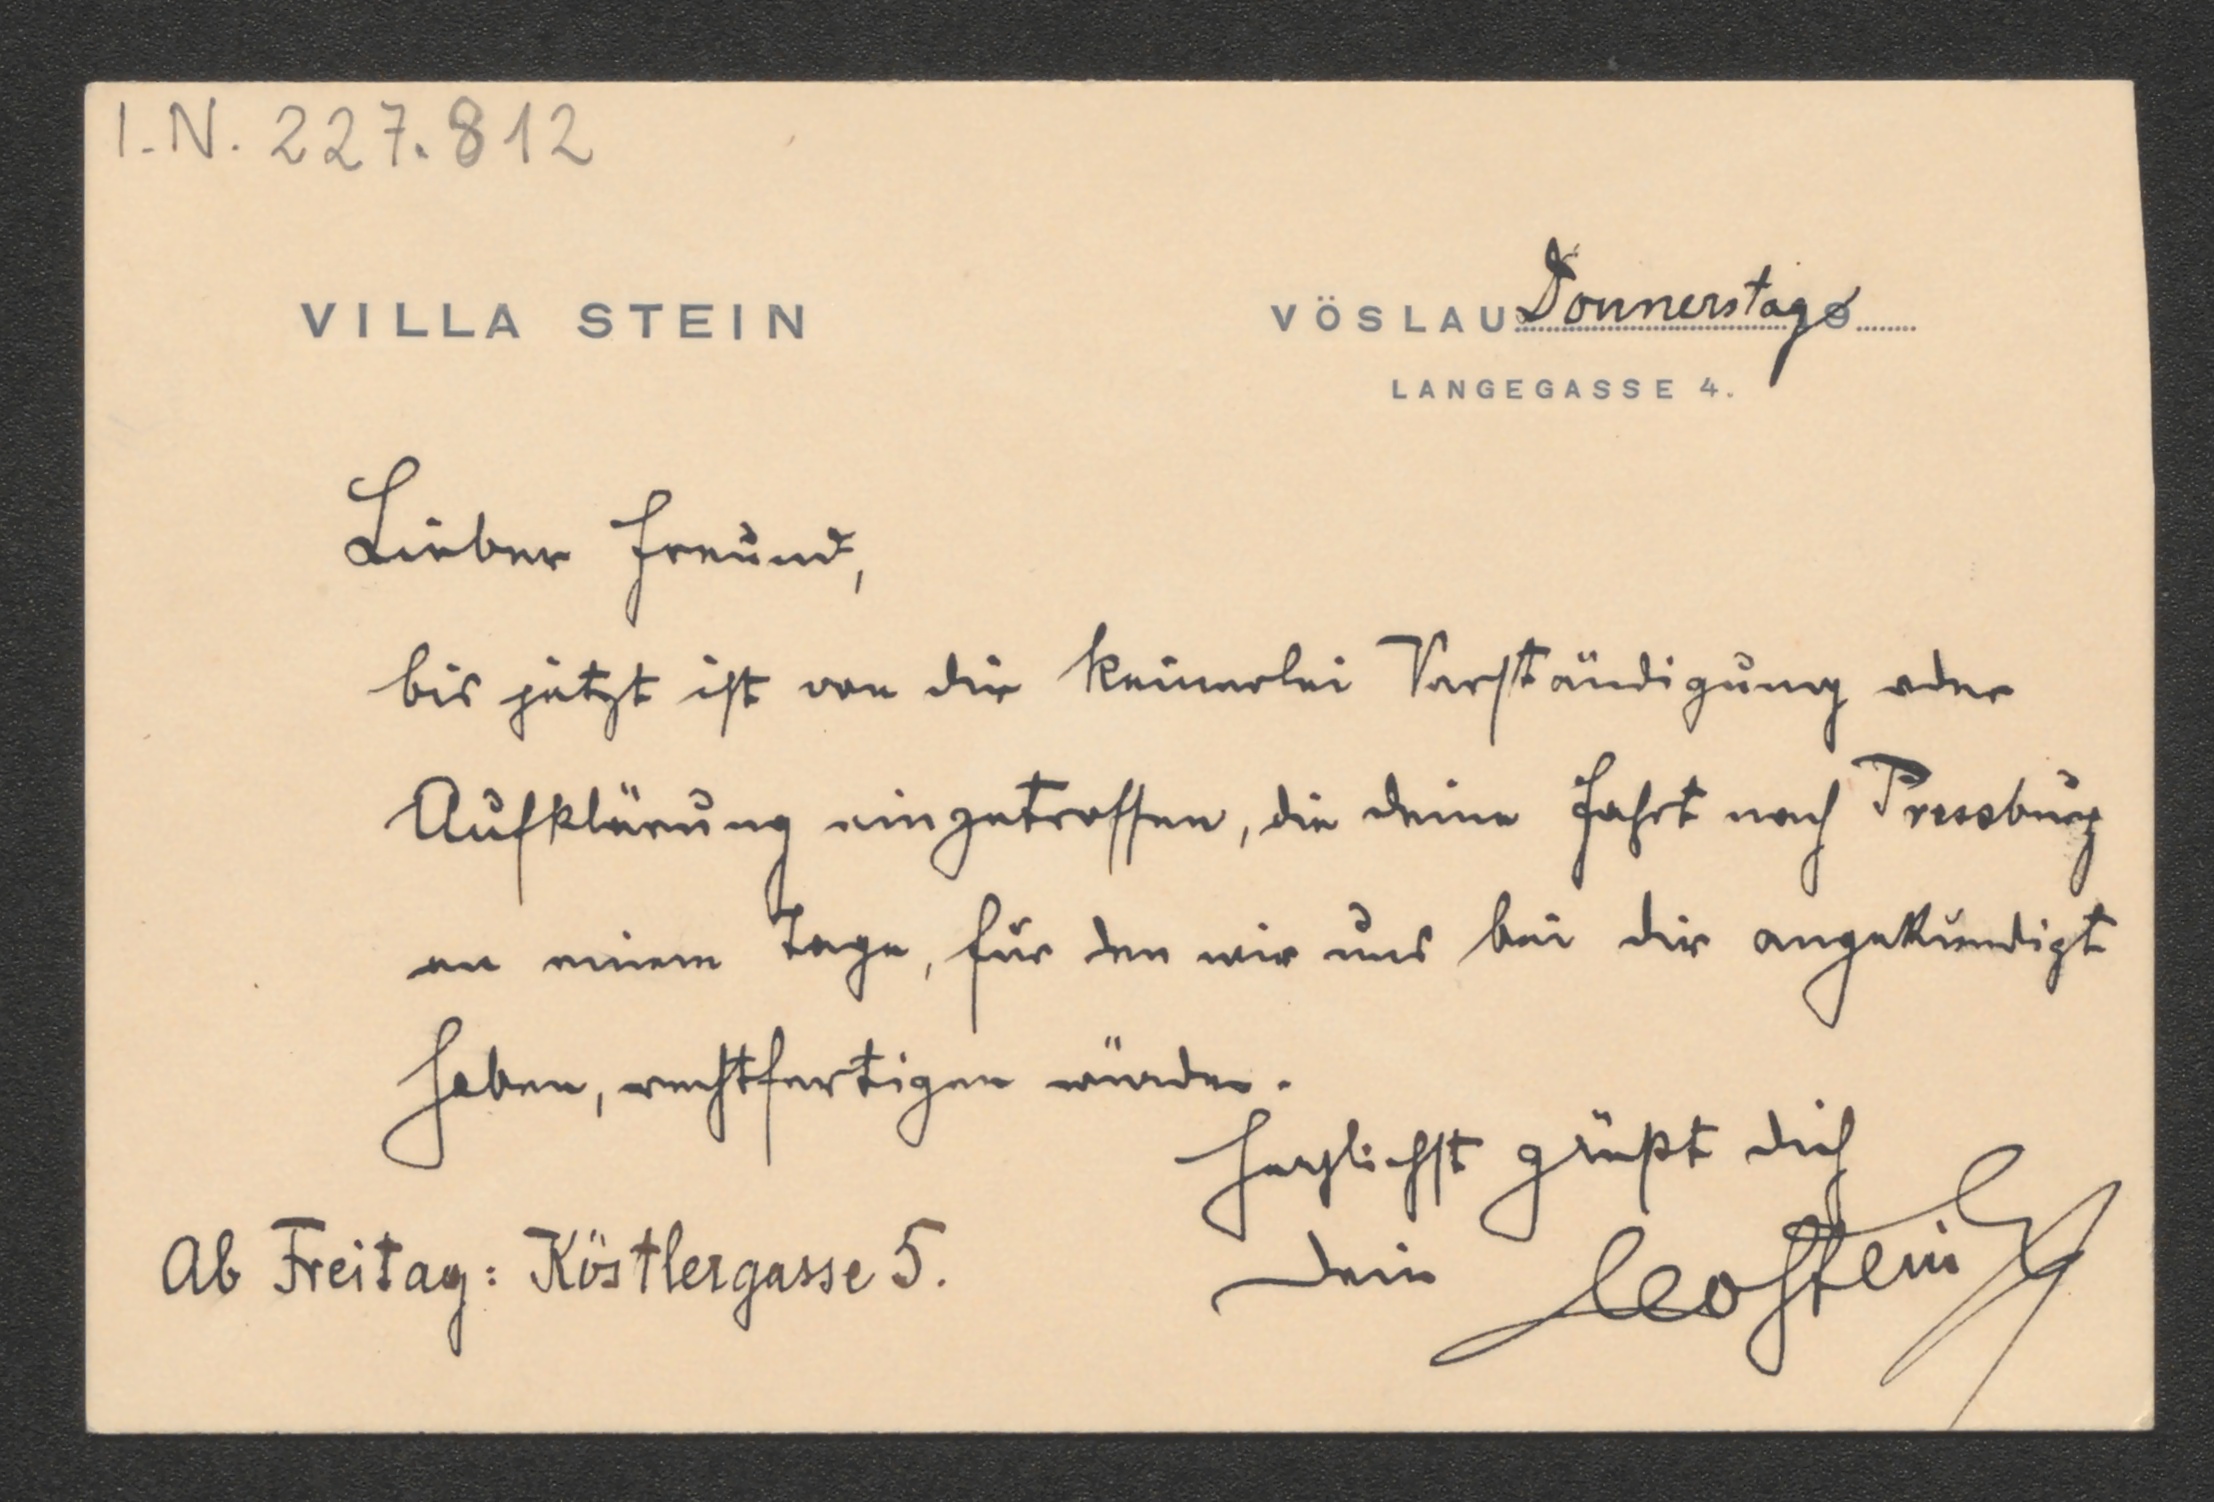 I.N. 227.812
VILLA STEIN
VÖSLAU Donnerstag
LANGEGASSE 4.
Lieber Freund,
bis jetzt ist von dir keinerlei Verständigung oder
Aufklärung eingetroffen, die deine Fahrt nach Pressburg
an einem Tage, für den wir uns bei dir angekündigt
haben, rechtfertigen würde.
Herzlichst grüßt dich
Dein Leo Stein
Ab Freitag: Köstlergasse 5.